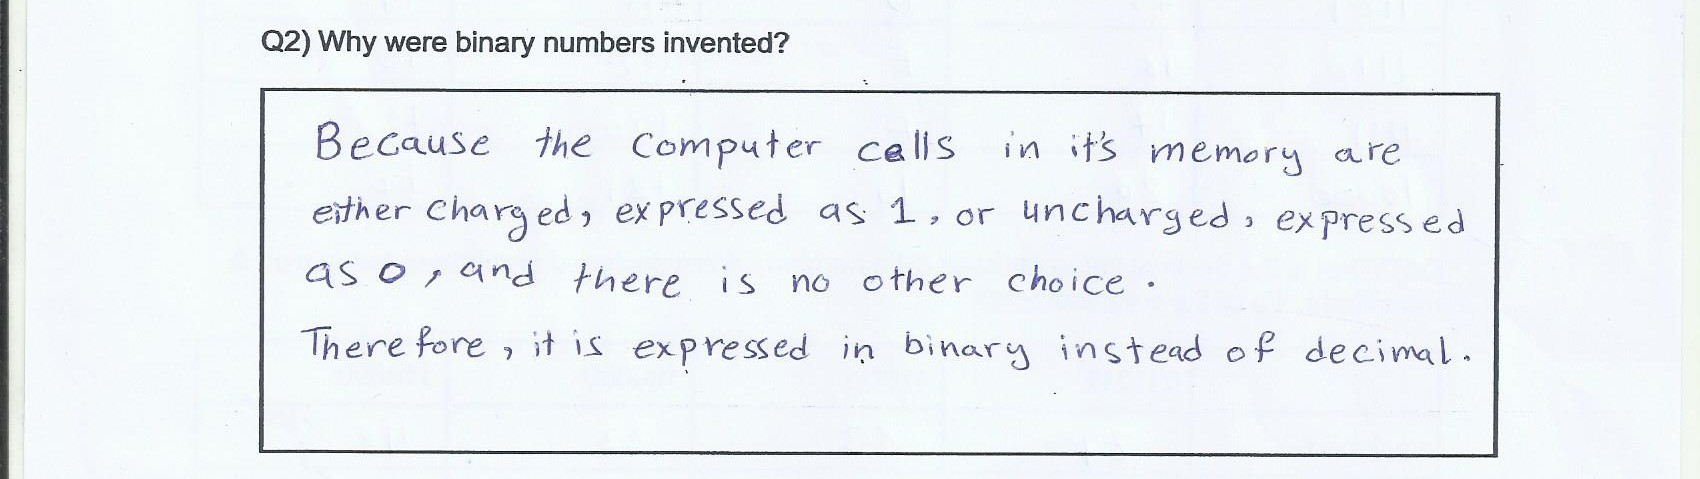 Q2) Why were binary numbers invented?
Because the computer cells in it's memory are
either charged, expressed as 1, or uncharged, expressed
as 0, and there is no other choice.
Therefore, it is expressed in binary instead of decimal.